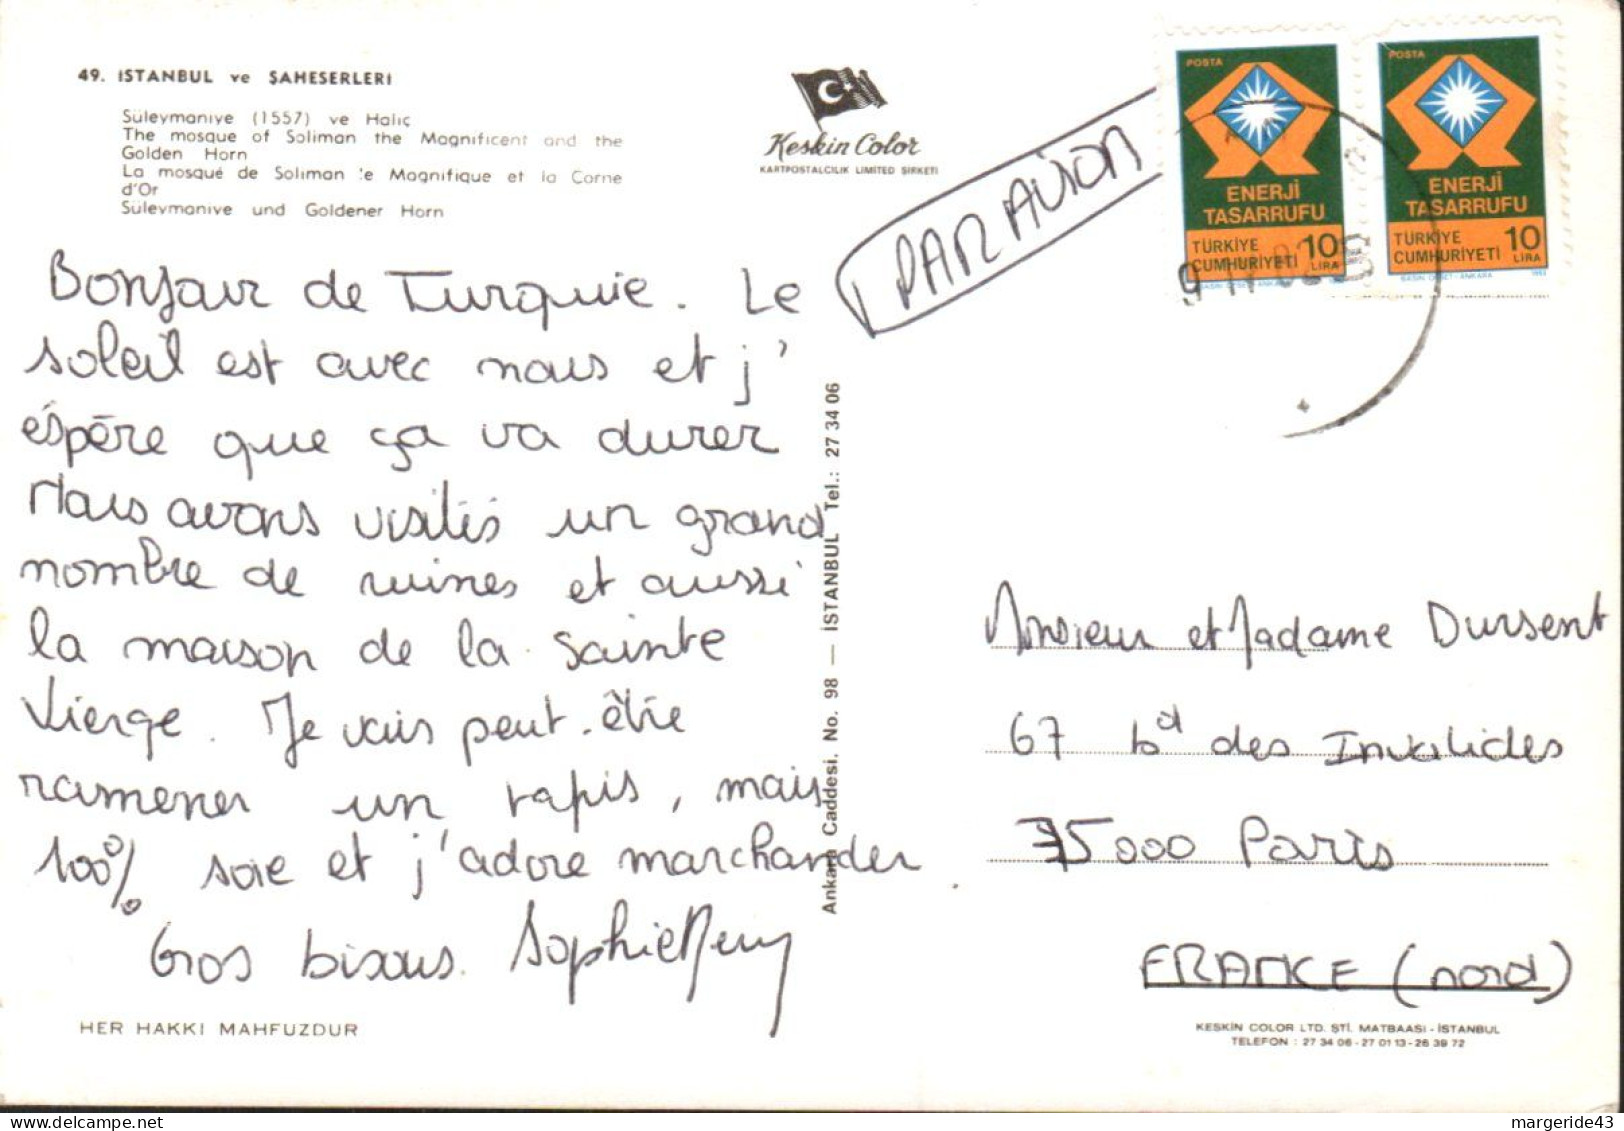 49. ISTANBUL ve ŞAHESERLERI
Süleymaniye (1557) ve Haliç
The mosque of Soliman the Magnificent and the
Golden Horn
La mosqué de Soliman le Magnifique et la Corne
d'Or
Süleymaniye und Goldener Horn
Keskin Color
KARTPOSTALCILIK LIMITED ŞIRKETI
PAR AVION
POSTA
ENERJİ
TASARRUFU
TÜRKİYE
CUMHURİYETİ
10
LIRA
POSTA
ENERJİ
TASARRUFU
TÜRKİYE
CUMHURİYETİ
10
LIRA
Bonjour de Turquie. Le
soleil est avec nous et j'
éspère que ça va durer
Nous avons visités un grand
nombre de ruines et aussi
la maison de la Sainte
Vierge. Je vais peut-être
ramener un tapis, mais
100% soie et j'adore marchander.
Gros bisous. Sophie Remy
HER HAKKI MAHFUZDUR
Ankara Caddesi. No. 98 — İSTANBUL Tel.: 27 34 06
Monsieur et Madame Dursent
67 bd des Invalides
75000 Paris
FRANCE (nord)
KESKİN COLOR LTD. ŞTİ. MATBAASI - İSTANBUL
TELEFON : 27 34 06 - 27 01 13 - 26 39 72
margeride43